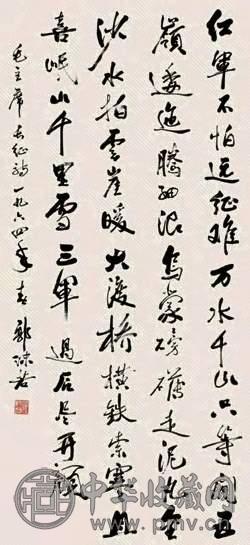 红軍不怕远征难万水千山只等闲五
嶺逶迤腾细浪烏蒙磅礴走泥丸金
沙水拍雲崖暖大渡桥横铁索寒更
喜岷山千里雪三軍過后尽开颜
毛主席長征诗一九六四年春 郭沫若
中华收藏网
www.pmv.cn